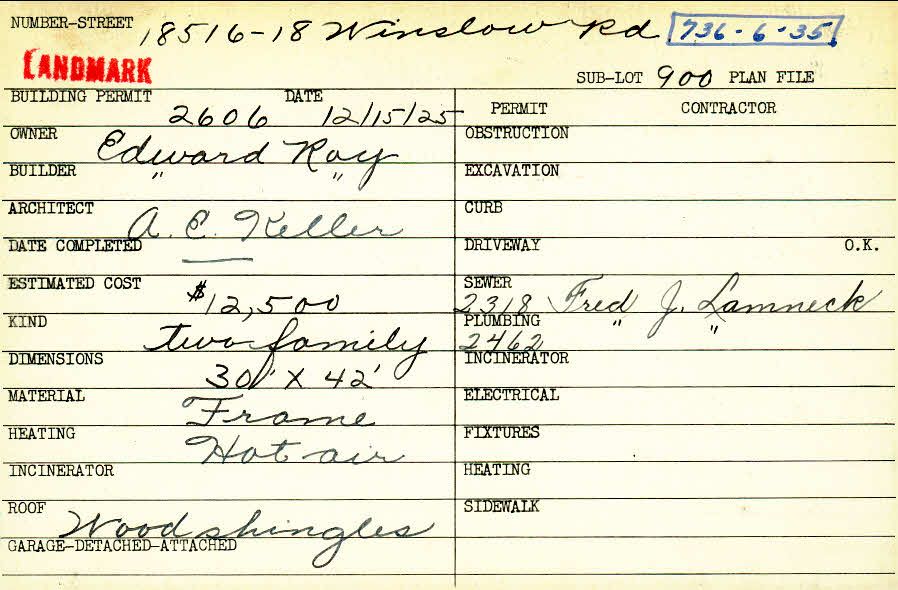 NUMBER-STREET 18516-18 Winslow Rd. 736-6-35
LANDMARK
SUB-LOT 900 PLAN FILE
BUILDING PERMIT 2606 DATE 12/15/25
PERMIT CONTRACTOR
OWNER Edward Roy
OBSTRUCTION
BUILDER " "
EXCAVATION
ARCHITECT A. C. Keller
CURB
DATE COMPLETED
DRIVEWAY O.K.
ESTIMATED COST $12,500
SEWER 2318 Fred J. Lamneck
KIND two family
PLUMBING 2462 " "
DIMENSIONS 30' X 42'
INCINERATOR
MATERIAL Frame
ELECTRICAL
HEATING Hot air
FIXTURES
INCINERATOR
HEATING
ROOF Wood shingles
SIDEWALK
GARAGE-DETACHED-ATTACHED